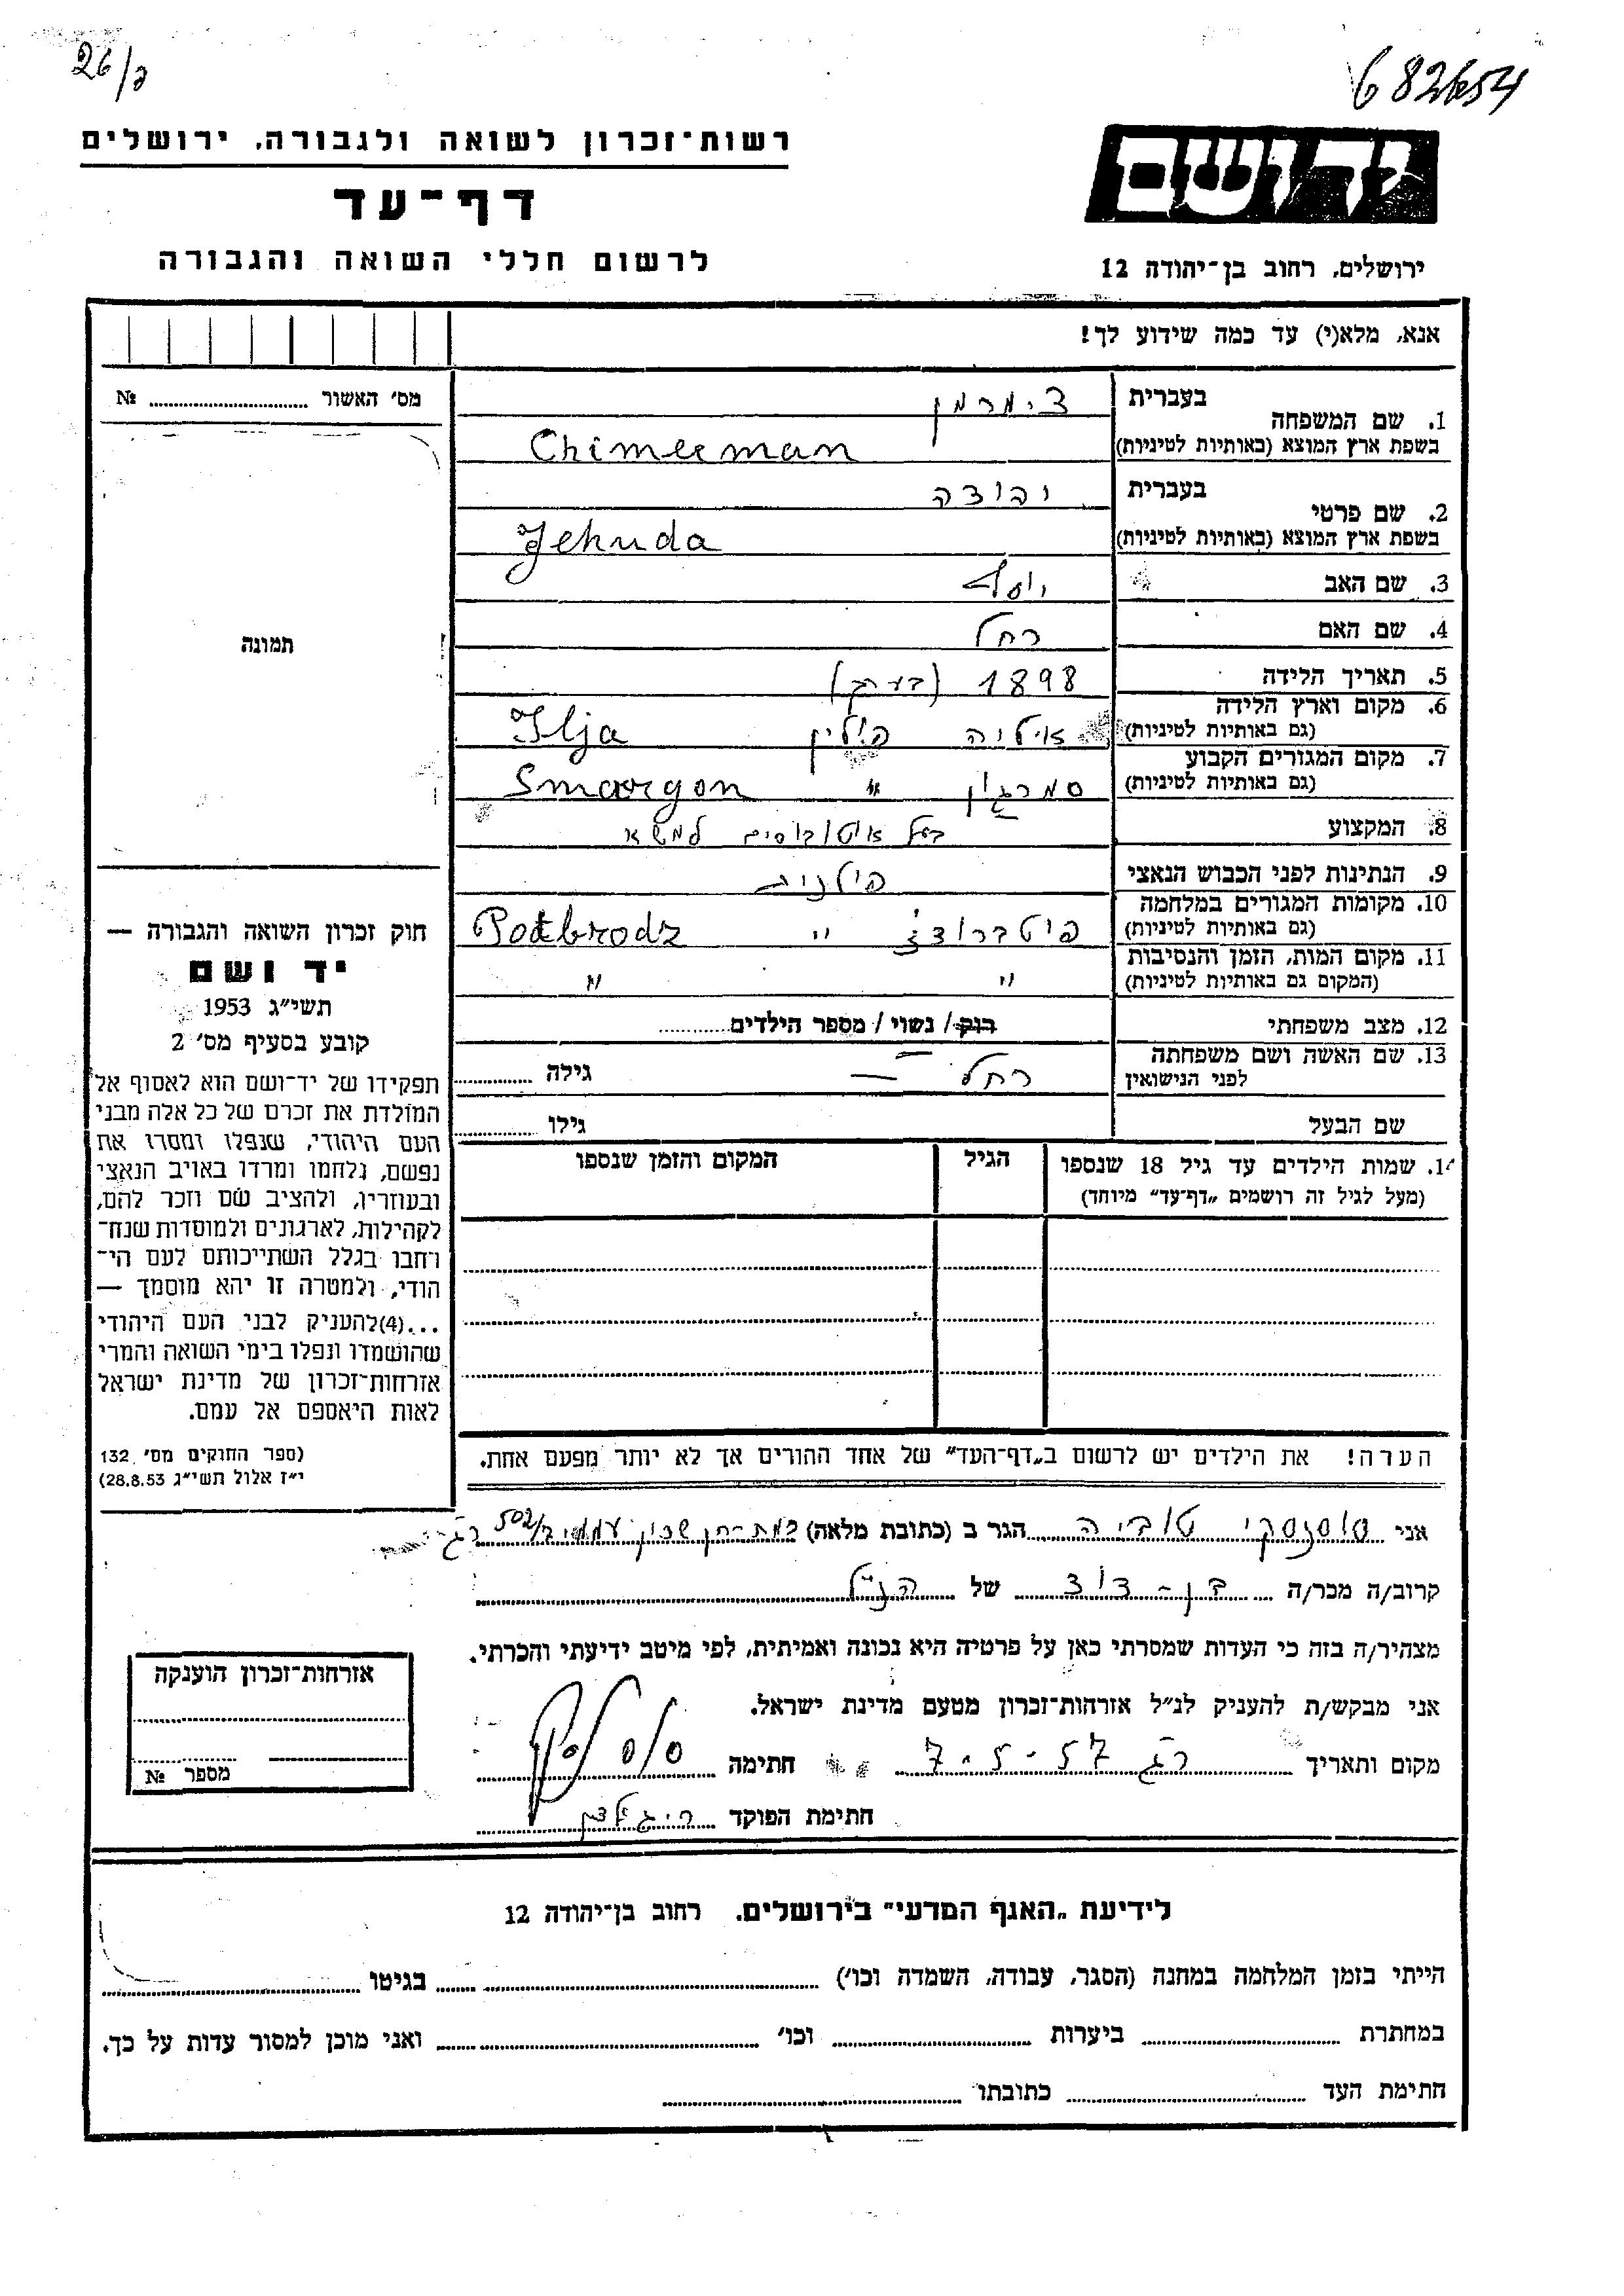 26/ג
682654
רשות־זכרון לשואה ולגבורה, ירושלים
דף־עד
לרשום חללי השואה והגבורה
יד ושם
ירושלים, רחוב בן־יהודה 12
אנא, מלא(י) עד כמה שידוע לך!
מס׳ האשור № 
1. שם המשפחה
בעברית צימרמן
בשפת ארץ המוצא (באותיות לטיניות) Chimerman
2. שם פרטי
בעברית יהודה
בשפת ארץ המוצא (באותיות לטיניות) Jehuda
3. שם האב יוסף
4. שם האם רחל
5. תאריך הלידה 1898 (בערך)
6. מקום וארץ הלידה
(גם באותיות לטיניות) איליה פולין Ilja
7. מקום המגורים הקבוע
(גם באותיות לטיניות) סמרגון " Smorgon
8. המקצוע בעל אוטובוסים למשא
9. הנתינות לפני הכבוש הנאצי פולנית
10. מקומות המגורים במלחמה
(גם באותיות לטיניות) פוטברודז " Potbrodz
11. מקום המות, הזמן והנסיבות
(המקום גם באותיות לטיניות) " "
12. מצב משפחתי רווק / נשוי / מספר הילדים
13. שם האשה ושם משפחתה
לפני הנישואין רחל — גילה
שם הבעל גילו
14. שמות הילדים עד גיל 18 שנספו
(מעל לגיל זה רושמים „דף־עד״ מיוחד)
הגיל
המקום והזמן שנספו
הערה! את הילדים יש לרשום ב„דף־העד״ של אחד ההורים אך לא יותר מפעם אחת.
תמונה
חוק זכרון השואה והגבורה —
יד ושם
תשי״ג 1953
קובע בסעיף מס׳ 2
תפקידו של יד־ושם הוא לאסוף אל
המולדת את זכרם של כל אלה מבני
העם היהודי, שנפלו ומסרו את
נפשם, נלחמו ומרדו באויב הנאצי
ובעוזריו, ולהציב שם וזכר להם,
לקהילות, לארגונים ולמוסדות שנח־
רחבו בגלל השתייכותם לעם הי־
הודי, ולמטרה זו יהא מוסמך —
...(4)להעניק לבני העם היהודי
שהושמדו ונפלו בימי השואה והמרי
אזרחות־זכרון של מדינת ישראל
לאות היאספם אל עמם.
(ספר החוקים מס׳ 132,
י״ז אלול תשי״ג 28.8.53)
אני סוסנסקי טוביה הגר ב (כתובת מלאה) רמת-חן שכון עממי ב/502 רג
קרוב/ה מכר/ה בן-דוד של הנ״ל
מצהיר/ה בזה כי העדות שמסרתי כאן על פרטיה היא נכונה ואמיתית, לפי מיטב ידיעתי והכרתי.
אני מבקש/ת להעניק לנ״ל אזרחות־זכרון מטעם מדינת ישראל.
מקום ותאריך רג 7-5-57 חתימה
חתימת הפוקד
אזרחות־זכרון הוענקה
מספר №
לידיעת „האגף המדעי״ בירושלים, רחוב בן־יהודה 12
הייתי בזמן המלחמה במחנה (הסגר, עבודה, השמדה וכו׳) בגיטו
במחתרת ביערות וכו׳ ואני מוכן למסור עדות על כך.
חתימת העד כתובתו